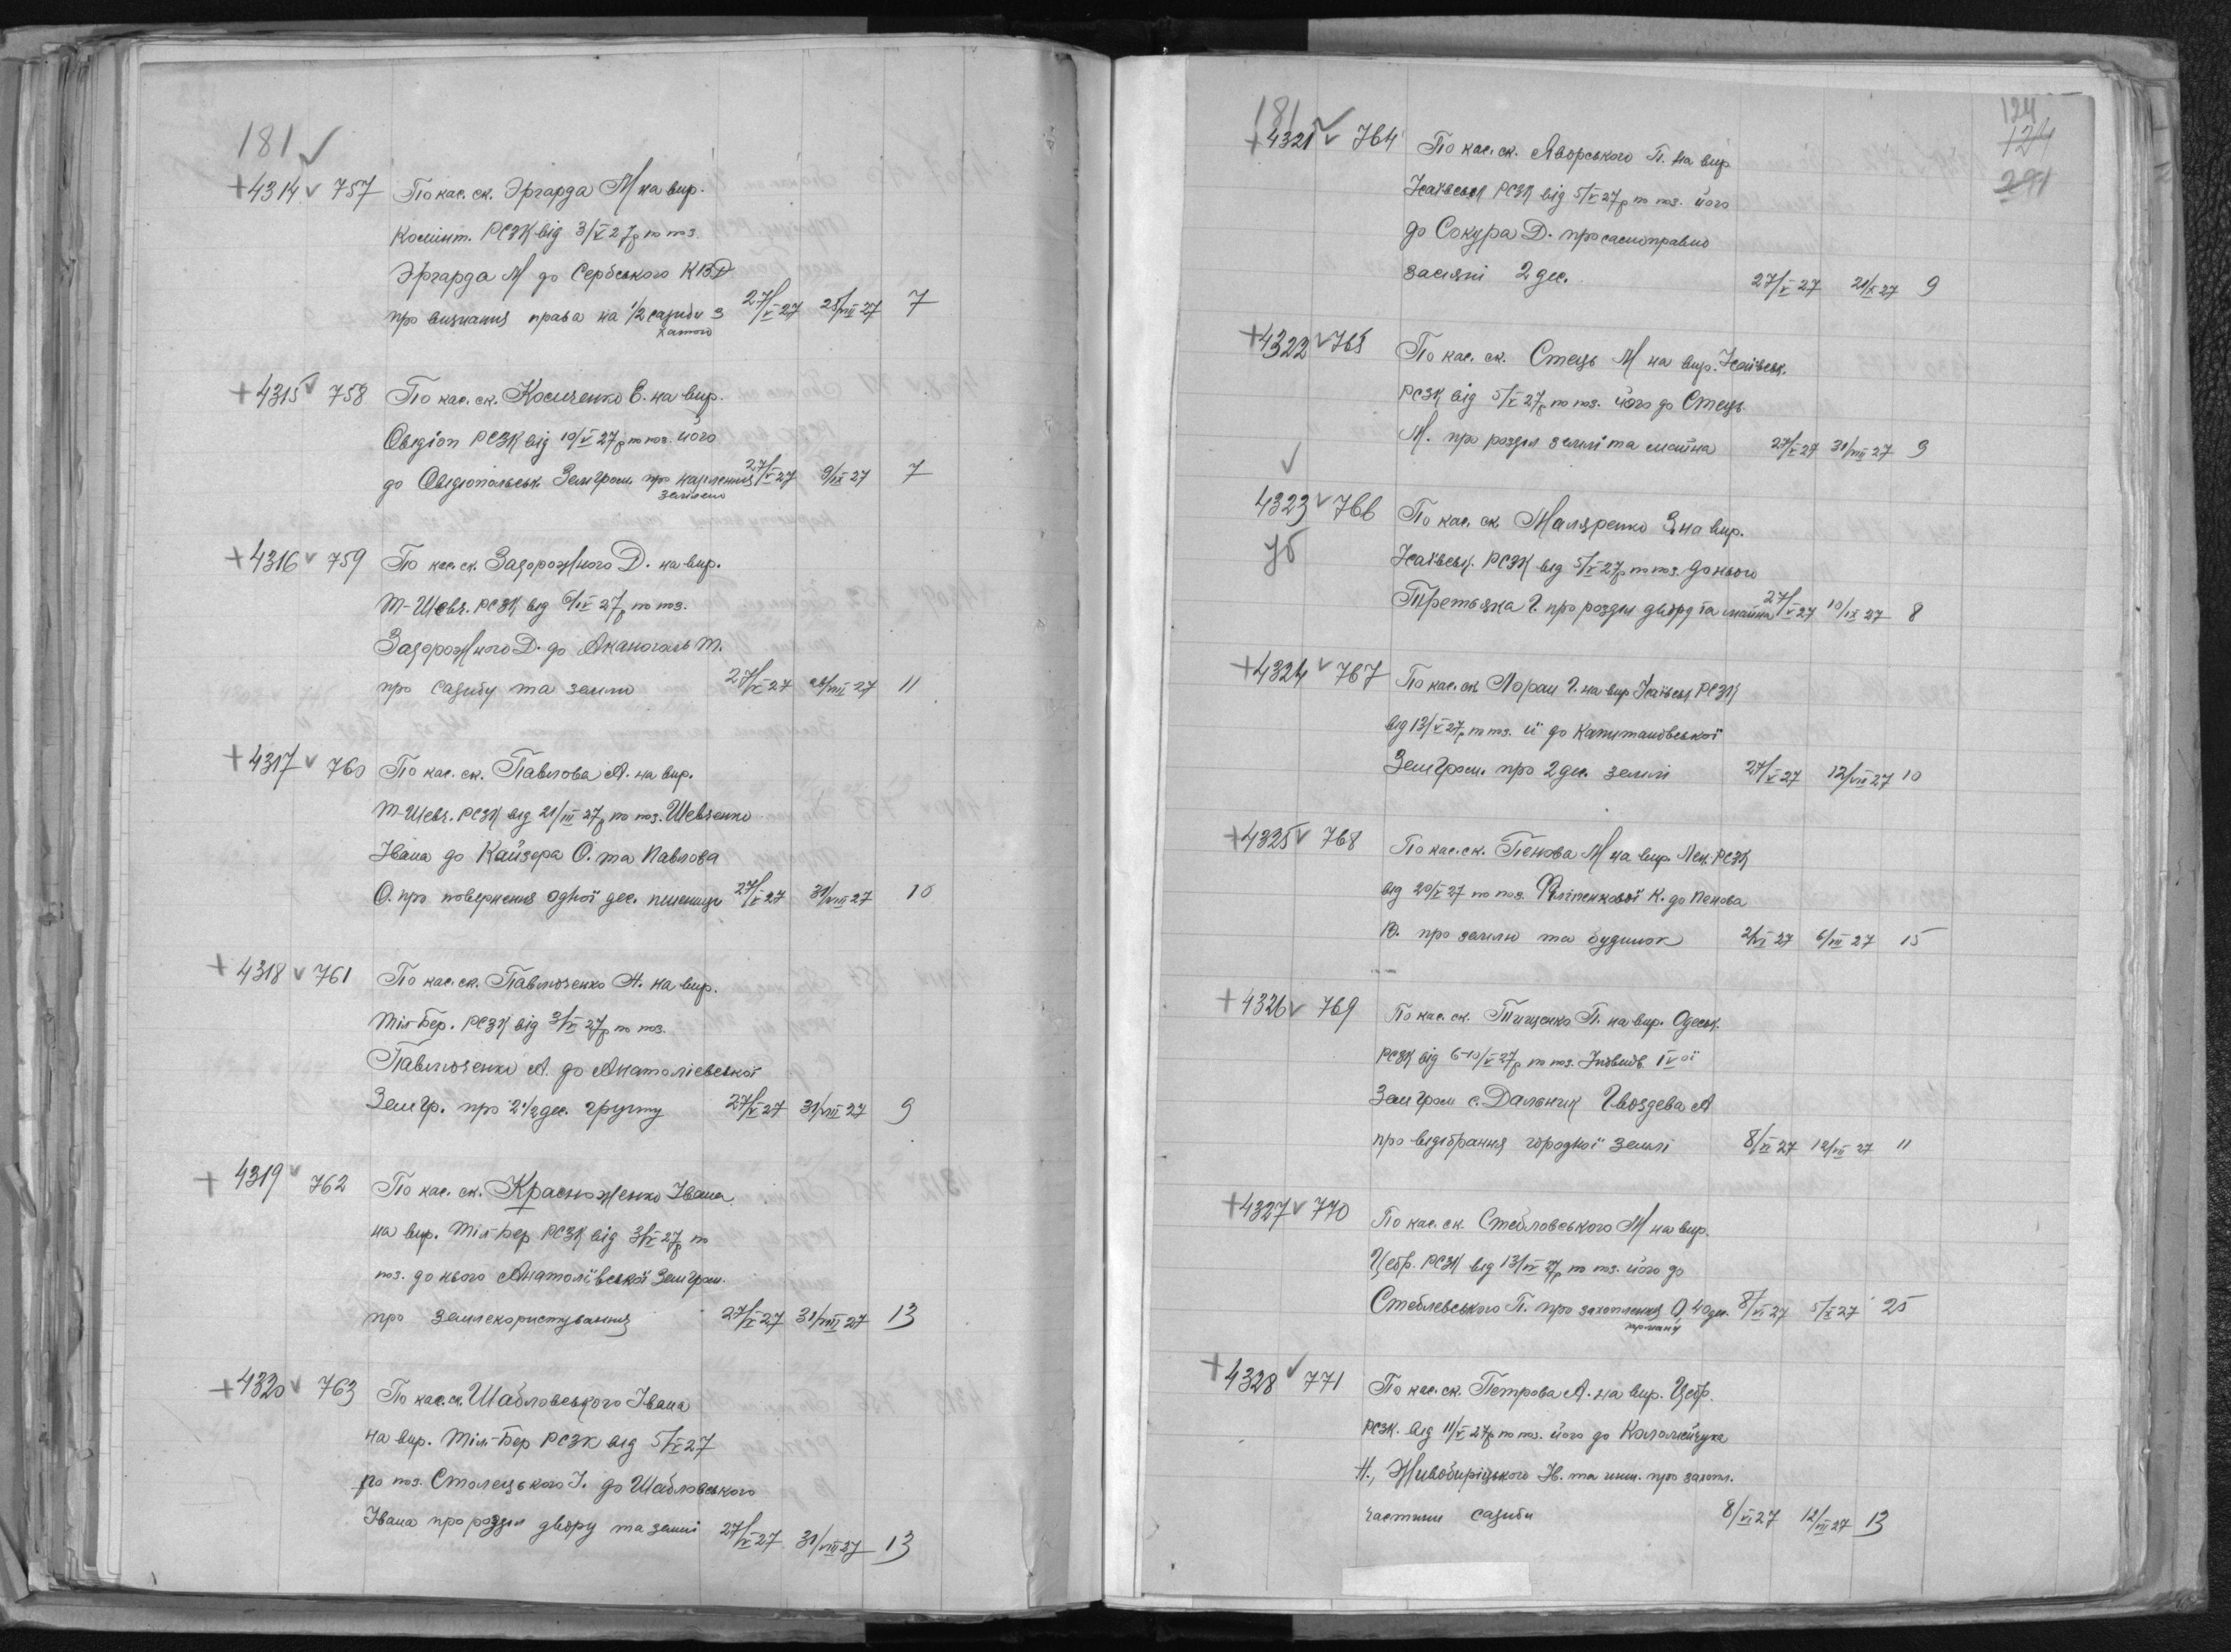 181 ✓
+4314 ✓ 757 По кас. ск. Эргарда М на вир.
Комінт. РСЗК від 3/V 27р по поз.
Эргарда М до Сербського КВД
про визнання права на 1/2 садиби з 27/V 27 25/VIII 27 7
хатою
+4315 ✓ 758 По кас. ск. Косиченко Е. на вир.
Овідіоп РСЗК від 10/V 27р по поз. його
до Овідіопольськ. Земгром. про наділення 27/V 27 9/IX 27 7
землею
+4316 ✓ 759 По кас. ск. Задорожного Д. на вир.
Т-Шевч. РСЗК від 6/IV 27р по поз.
Задорожного Д. до Т.
про садибу та землю 27/V 27 26/VIII 27 11
+4317 ✓ 760 По кас. ск. Павлова А. на вир.
Т-Шевч. РСЗК від 21/III 27р по поз. Шевченко
Івана до Кайзера О. та Павлова
О. про повернення одної дес. пшениці 27/V 27 31/VIII 27 10
+4318 ✓ 761 По кас. ск. Павлюченко А. на вир.
Тіл-Бер. РСЗК від 3/V 27р по поз.
Павлюченко А. до Анатоліевської
Земгр. про 2 1/2 дес. грунту 27/V 27 31/VIII 27 9
+4319 ✓ 762 По кас. ск. Красноженко Івана
на вир. Тіл-Бер РСЗК від 3/V 27р по
поз. до нього Анатоліївської Земгром.
про землекористування 27/V 27 31/VIII 27 13
+4320 ✓ 763 По кас. ск. Шабловського Івана
на вир. Тіл-Бер РСЗК від 5/V 27
по поз. Столецького І. до Шабловського
Івана про розділ двору та землі 27/V 27 31/VIII 27 13
181 ✓
124
124
291
+4321 ✓ 764 По кас. ск. Яворського П. на вир
Ісаївськ РСЗК від 5/V 27р по поз. його
до Сокура Д. про самоправно
засіяні 2 дес. 27/V 27 21/X 27 9
+4322 ✓ 765 По кас. ск. Стець М на вир. Ісаївськ.
РСЗК від 5/V 27р по поз. його до Стець
М. про розділ землі та майна 27/V 27 31/VIII 27 9
✓
4323 ✓ 766 По кас. ск. Маляренко З. на вир.
уб Ісаївськ. РСЗК від 5/V 27р по поз. до нього
Третьяка Г. про розділ двору та майна 27/V 27 10/IX 27 8
+4324 ✓ 767 По кас. ск. Лорай Г. на вир Ісаївськ РСЗК
від 13/V 27р по поз. її до Капитановської
Земгром. про 2 дес. землі 27/V 27 12/VII 27 10
+4325 ✓ 768 По кас. ск. Пенова М на вир. РСЗК
від 20/V 27 по поз. Філіпенкової К. до Пенова
В. про землю та будинок 2/VI 27 6/VII 27 15
+4326 ✓ 769 По кас. ск. Тищенко П. на вир. Одеськ.
РСЗК від 6-10/V 27р по поз. IV ої
Земгром с. Дальник Гвоздева А
про відібрання городної землі 8/VI 27 12/VII 27 11
+4327 ✓ 770 По кас. ск. Стебловського М на вир.
Цебр. РСЗК від 13/IV 27р по поз. його до
Стеблевського П. про захоплення 0,40 дес. 8/VI 27 5/X 27 25
+4328 ✓ 771 По кас. ск. Петрова А. на вир. Цебр.
РСЗК. від 11/V 27р по поз. його до Коломейчука
Н., Ів. та инш. про захопл.
частини садиби 8/VI 27 12/VII 27 13